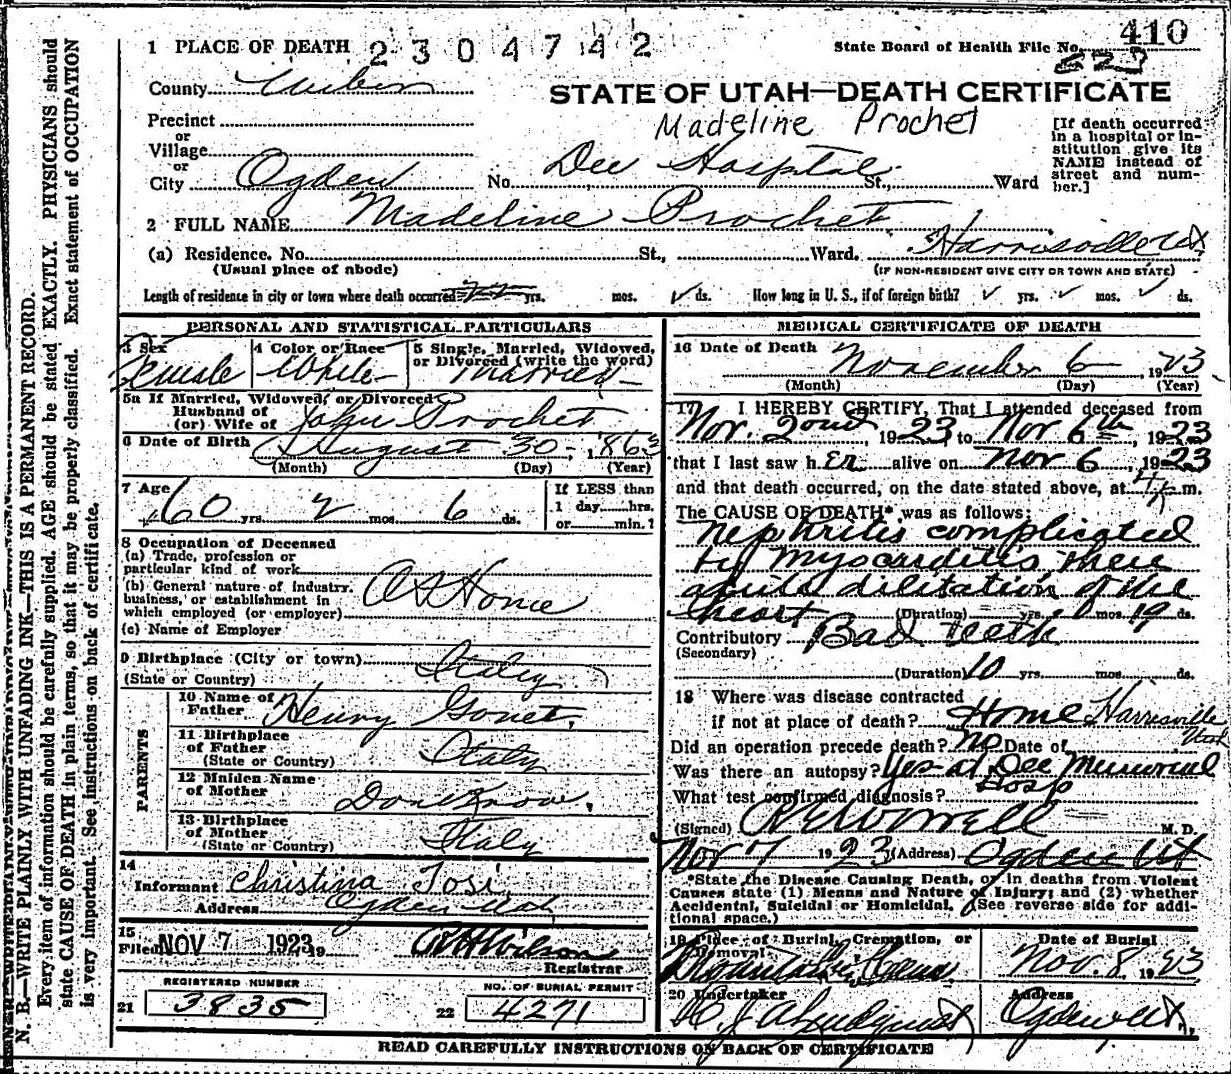 410
1 PLACE OF DEATH 2304742 State Board of Health File No.
County Weber
STATE OF UTAH—DEATH CERTIFICATE
Madeline Prochet
Precinct
or
Village
or
City Ogden No. Dee Hospital St., Ward
[If death occurred
in a hospital or in-
stitution give its
NAME instead of
street and num-
ber.]
2 FULL NAME Madeline Prochet
(a) Residence. No. St., Ward. Harrisville Ut
(Usual place of abode) (IF NON-RESIDENT GIVE CITY OR TOWN AND STATE)
Length of residence in city or town where death occurred yrs. mos. ds. How long in U. S., if of foreign birth? yrs. mos. ds.
PERSONAL AND STATISTICAL PARTICULARS
3 Sex Female
4 Color or Race White
5 Single, Married, Widowed,
or Divorced (write the word)
Married
5a If Married, Widowed, or Divorced
Husband of
(or) Wife of John Prochet
6 Date of Birth August 30, 1863
(Month) (Day) (Year)
7 Age 60 yrs. 2 mos. 6 ds.
If LESS than
1 day hrs.
or min.?
8 Occupation of Deceased
(a) Trade, profession or
particular kind of work
(b) General nature of industry,
business, or establishment in
which employed (or employer)
At Home
(c) Name of Employer
9 Birthplace (City or town)
(State or Country) Italy
PARENTS
10 Name of
Father Henry Gonet.
11 Birthplace
of Father
(State or Country) Italy
12 Maiden Name
of Mother Dont Know.
13 Birthplace
of Mother
(State or Country) Italy
14
Informant Christina Tosi
Address Ogden Utah
15
Filed NOV 7 1923 19
Registrar
REGISTERED NUMBER
21 3835
NO. OF BURIAL PERMIT
22 4271
MEDICAL CERTIFICATE OF DEATH
16 Date of Death November 6, 1923
(Month) (Day) (Year)
17 I HEREBY CERTIFY, That I attended deceased from
Nov. 2nd, 1923, to Nov 6th, 1923
that I last saw h Er alive on Nov 6, 1923
and that death occurred, on the date stated above, at m.
The CAUSE OF DEATH* was as follows:
Nephritis complicated
by myocarditis there
acute dilitation of the
heart (Duration) yrs. mos. 19 ds.
Contributory Bad teeth
(Secondary)
(Duration) 10 yrs. mos. ds.
18 Where was disease contracted
if not at place of death? Home Harrisville
Utah
Did an operation precede death? no Date of
Was there an autopsy? Yes at Dee Memorial
Hosp
What test confirmed diagnosis?
(Signed) M. D.
Nov 7 1923 (Address) Ogden Ut
*State the Disease Causing Death, or in deaths from Violent
Causes state (1) Means and Nature of Injury; and (2) whether
Accidental, Suicidal or Homicidal. (See reverse side for addi-
tional space.)
19 Place of Burial, Cremation, or
Removal
Date of Burial
Nov. 8 1923
20 Undertaker
Address
Ogden Ut.
READ CAREFULLY INSTRUCTIONS ON BACK OF CERTIFICATE
N. B.—WRITE PLAINLY WITH UNFADING INK—THIS IS A PERMANENT RECORD.
Every item of information should be carefully supplied. AGE should be stated EXACTLY. PHYSICIANS should
state CAUSE OF DEATH in plain terms, so that it may be properly classified. Exact statement of OCCUPATION
is very important. See instructions on back of certificate.